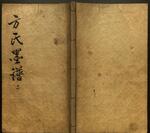 方氏墨譜 二